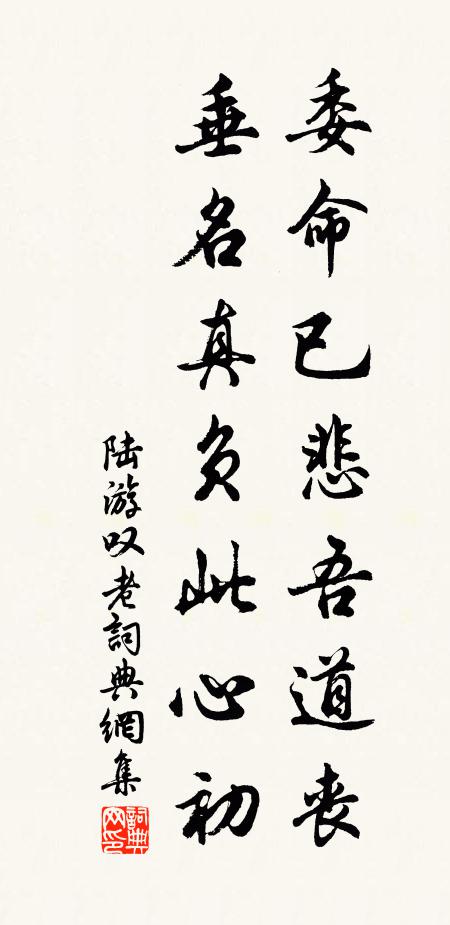 委命已悲吾道丧
垂名真负此心初
陆游叹老詞典網集
詞典网印